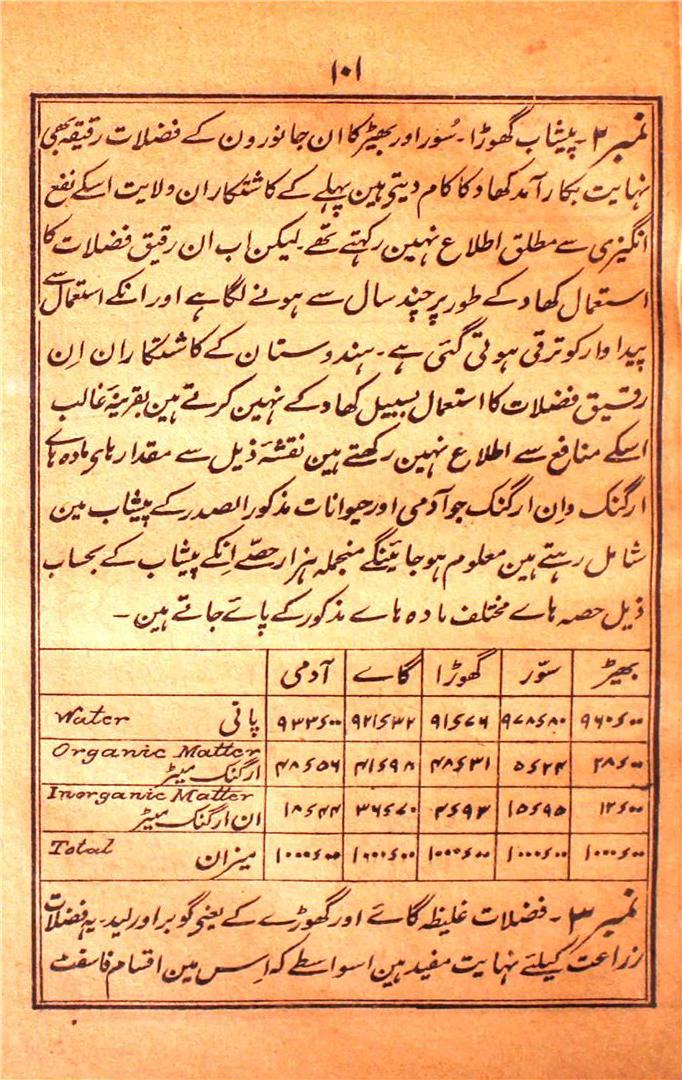 ۱۰۱
نمبر ۲ ۔ پیشاب گھوڑا ۔ سُور اور بھیڑ کا ان جانورون کے فضلات رقیقہ بھی
نہایت بکار آمد کھاد کا کام دیتی ہین پہلے کے کاشتکاران ولایت اسکے نفع
انگیزی سے مطلق اطلاع نہین رکہتے تھے ۔ لیکن اب ان رقیق فضلات کا
استعمال کھاد کے طور پر چند سال سے ہونے لگا ہے اور انکے استعمال سے
پیداوار کو ترقی ہوتی گئی ہے ۔ ہندوستان کے کاشتکاران اِن
رقیق فضلات کا استعمال بسبیل کھاد کے نہین کرتے ہین بقرینۂ غالب
اسکے منافع سے اطلاع نہین رکھتے ہین نقشۂ ذیل سے مقدار ہای مادہ ہاے
ارگنک و اِن ارگنک جو آدمی اور حیوانات مذکور الصدر کے پیشاب مین
شامل رہتے ہین معلوم ہو جائینگے منجملہ ہزار حصّے اِنکے پیشاب کے بحساب
ذیل حصہ ہاے مختلف مادہ ہاے مذکور کے پاے جاتے ہین –
آدمی گاے گھوڑا سوّر بھیڑ
Water پانی ۹۳۳٫۰۰ ۹۲۱٫۳۲ ۹۷۸٫۸۰ ۹۶۰٫۰۰
Organic Matter
ارگنک میٹر ۴۸٫۵۶ ۴۱٫۹۸ ۴۸٫۳۱ ۵٫۲۴ ۲۸٫۰۰
Inorganic Matter
ان ارگنک میٹر ۱۸٫۴۴ ۳۶٫۷۰ ۴٫۹۳ ۱۵٫۹۵ ۱۲٫۰۰
Total میزان ۱۰۰۰٫۰۰ ۱۰۰۰٫۰۰ ۱۰۰۰٫۰۰ ۱۰۰۰٫۰۰
نمبر ۳ ۔ فضلات غلیظہ گاے اور گھوڑے کے یعنی گوبر اور لید ۔ یہ فضلات
زراعت کیلئے نہایت مفید ہین اسواسطے کہ اِس مین اقسام فاسفٹ